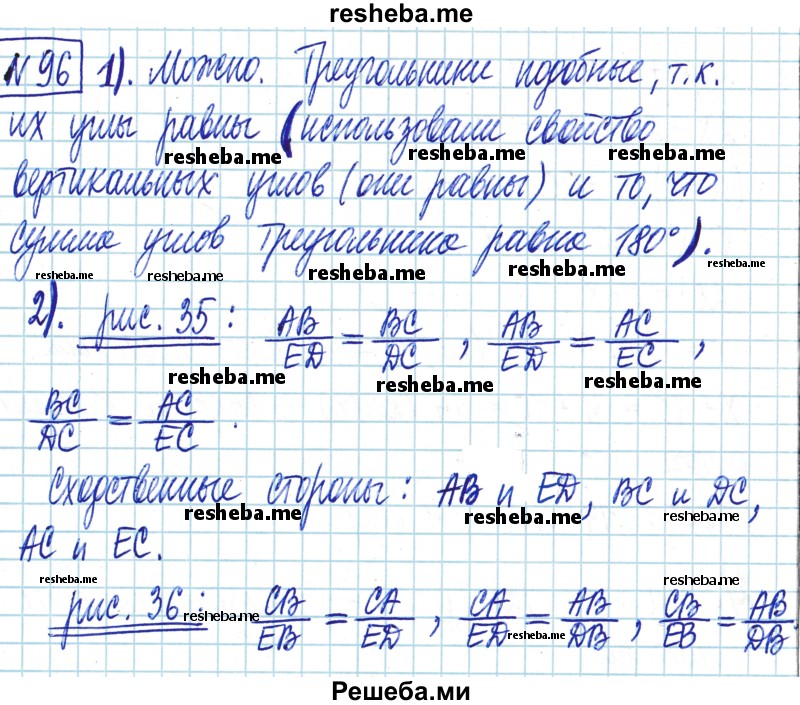 resheba.me
№96 1). Можно. Треугольники подобные, т.к.
их углы равны (использовали свойство
resheba.me resheba.me resheba.me
вертикальных углов (они равны) и то, что
сумма углов треугольника равна 180°).
resheba.me resheba.me resheba.me resheba.me resheba.me
2). рис. 35: AB/ED = BC/DC, AB/ED = AC/EC,
resheba.me resheba.me resheba.me
BC/DC = AC/EC.
Сходственные стороны: AB и ED, BC и DC,
resheba.me resheba.me resheba.me
AC и EC.
resheba.me resheba.me
рис. 36: CB/EB = CA/ED, CA/ED = AB/DB, CB/EB = AB/DB.
resheba.me resheba.me
Решеба.ми